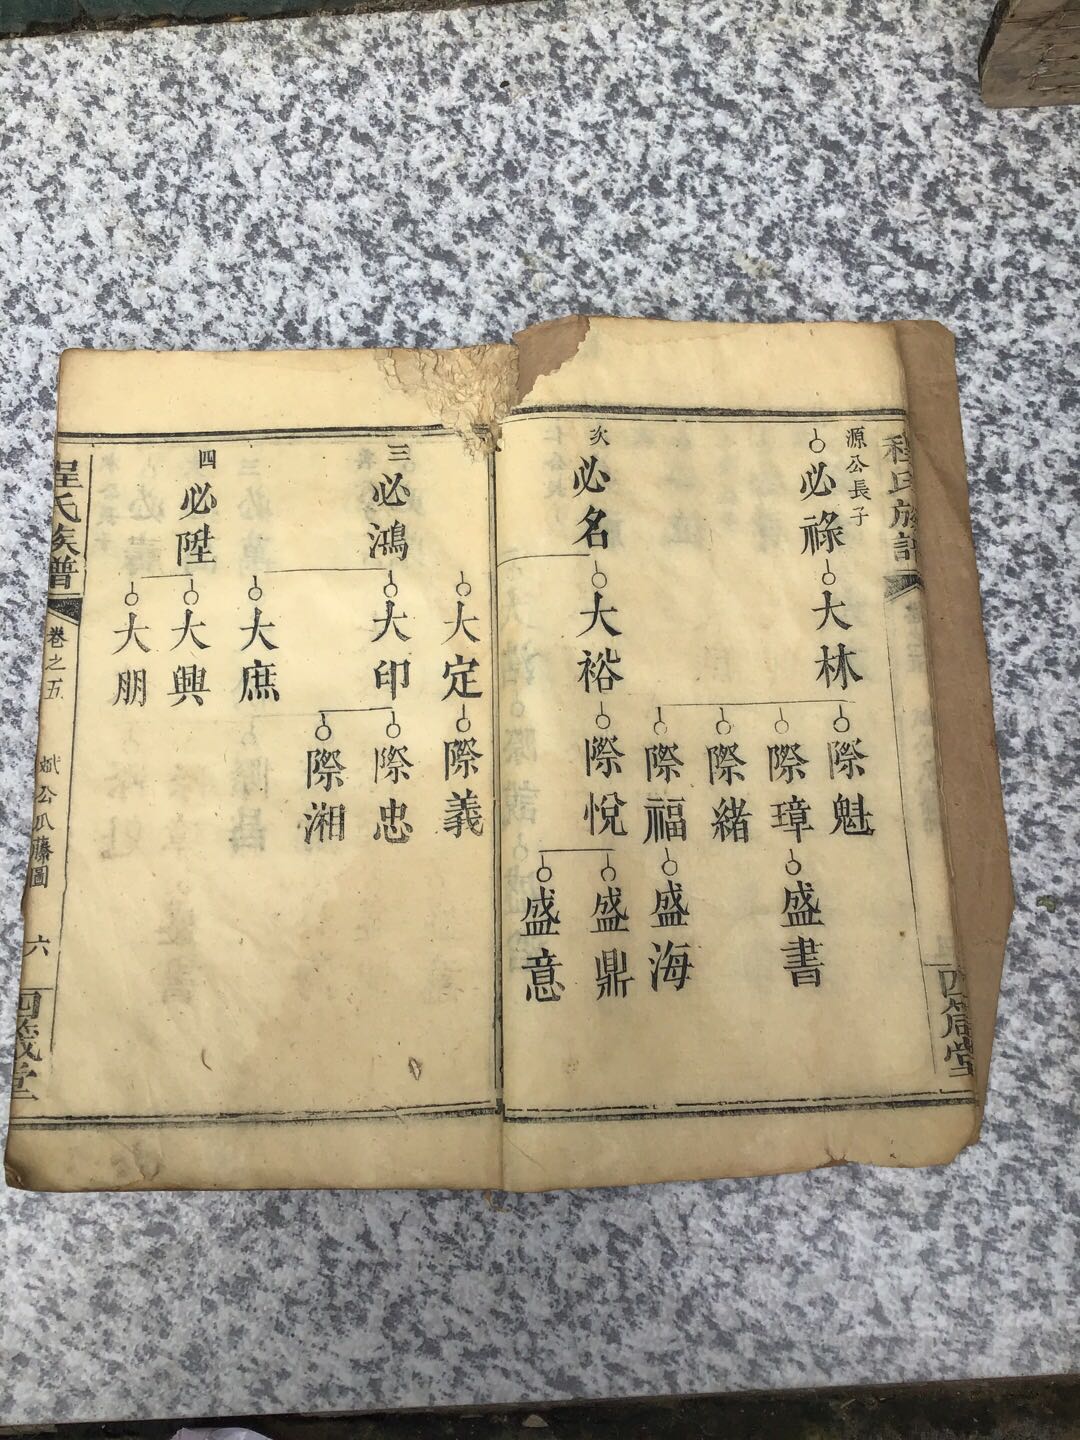 程氏族譜
四箴堂
源公長子
必祿
大林
際魁
際璋
盛書
際緒
際福
盛海
次
必名
大裕
際悅
盛鼎
盛意
大定
際義
三
必鴻
大印
際忠
際湘
大庶
四
必陞
大興
大朋
程氏族譜
卷之五
斌公瓜藤圖
六
四箴堂